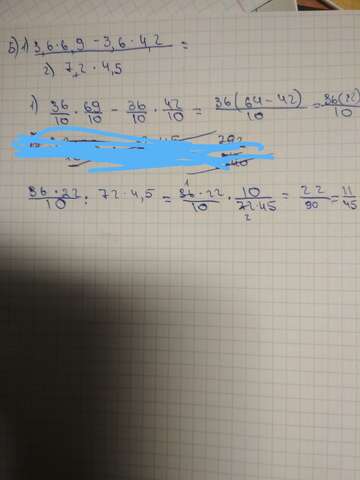 б) 1) 3,6·6,9 – 3,6·4,2 =
2) 7,2·4,5
1) 36/10 · 69/10 – 36/10 · 42/10 = 36(64–42)/10 = 36(22)/10
36·22/10 : 72·4,5 = 36·22/10 · 10/72·45 = 22/90 = 11/45